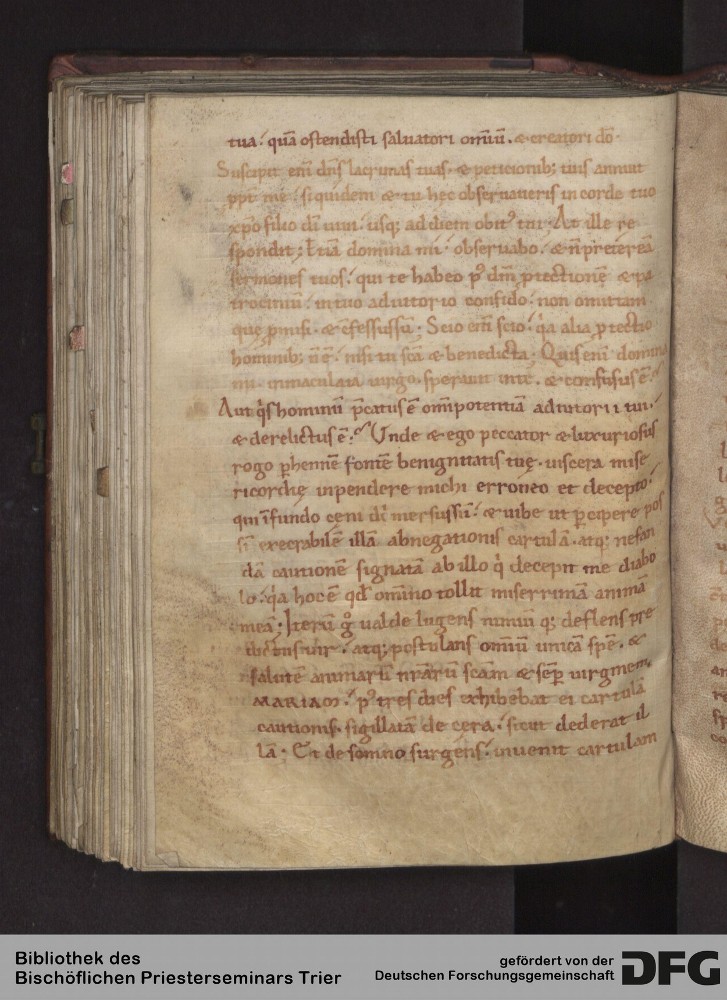 tua. quā ostendisti saluatori omīū. & creatori dō.
Suscipit eni dn̄s lacrimas tuas. & peticionib; tuis annuit
ppt me. siquidem & tu hec obseruaueris in corde tuo
xp̄o filio dī uiui. usq; ad diem obit⁹ tui. At ille re
spondit; Etiā domina mi. obseruabo. & n̄ preteream
sermones tuos. qui te habeo p⁹ dm̄ ptectionē & pa
trociniū. in tuo adiutorio confido. non omittam
quę pmisi. & cfessussū. Scio eni scio. qa alia ptectio
hominib; nē. nisi tu scā & benedicta. Quis eni domina
mi. inmaculata uirgo. sperauit inte. & confusus ē.
Aut qs hominū pcatus ē omipotentiā adiutorii tui.
& derelictus ē. Unde & ego peccator & luxuriosus
rogo phennē fontē benignitatis tuę. uiscera mise
ricordię inpendere michi erroneo et decepto.
qui ifundo ceni di mersussū. & iube ut pcipere pos
sī execrabilē illā abnegationis cartulā. atq; nefan
dā cautionē signatā ab illo q decepit me diabo
lo. qa hoc ē qd omino tollit miserrimā animā
meā; Iterū g ualde lugens nimiū q; deflens pre
dictus uir. atq; postulans omiū unicā spē. &
salutē animarū nrarū scam & semp uirginem.
MARIAM. p⁹ tres dies exhibebat ei cartulā
cautionis. sigillatā de cera. sicut dederat il
lā; Et de somno surgens. inuenit cartulam
Bibliothek des
Bischöflichen Priesterseminars Trier
gefördert von der
Deutschen Forschungsgemeinschaft
DFG